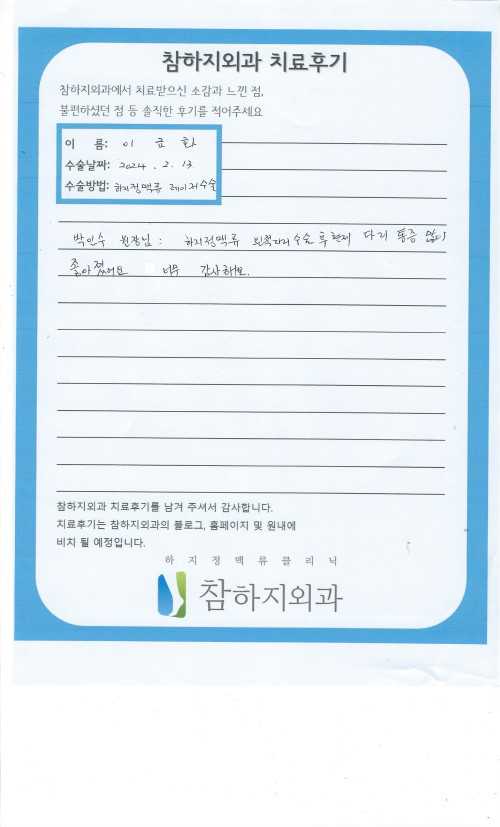 참하지외과 치료후기
참하지외과에서 치료받으신 소감과 느낀 점,
불편하셨던 점 등 솔직한 후기를 적어주세요
이 름: 이 금 화
수술날짜: 2024. 2. 13
수술방법: 하지정맥류 레이저수술
박인수 원장님 : 하지정맥류 왼쪽다리 수술 후 현재 다리 통증 없이
좋아졌어요 너무 감사해요.
참하지외과 치료후기를 남겨 주셔서 감사합니다.
치료후기는 참하지외과의 블로그, 홈페이지 및 원내에
비치 될 예정입니다.
하지정맥류클리닉
참하지외과